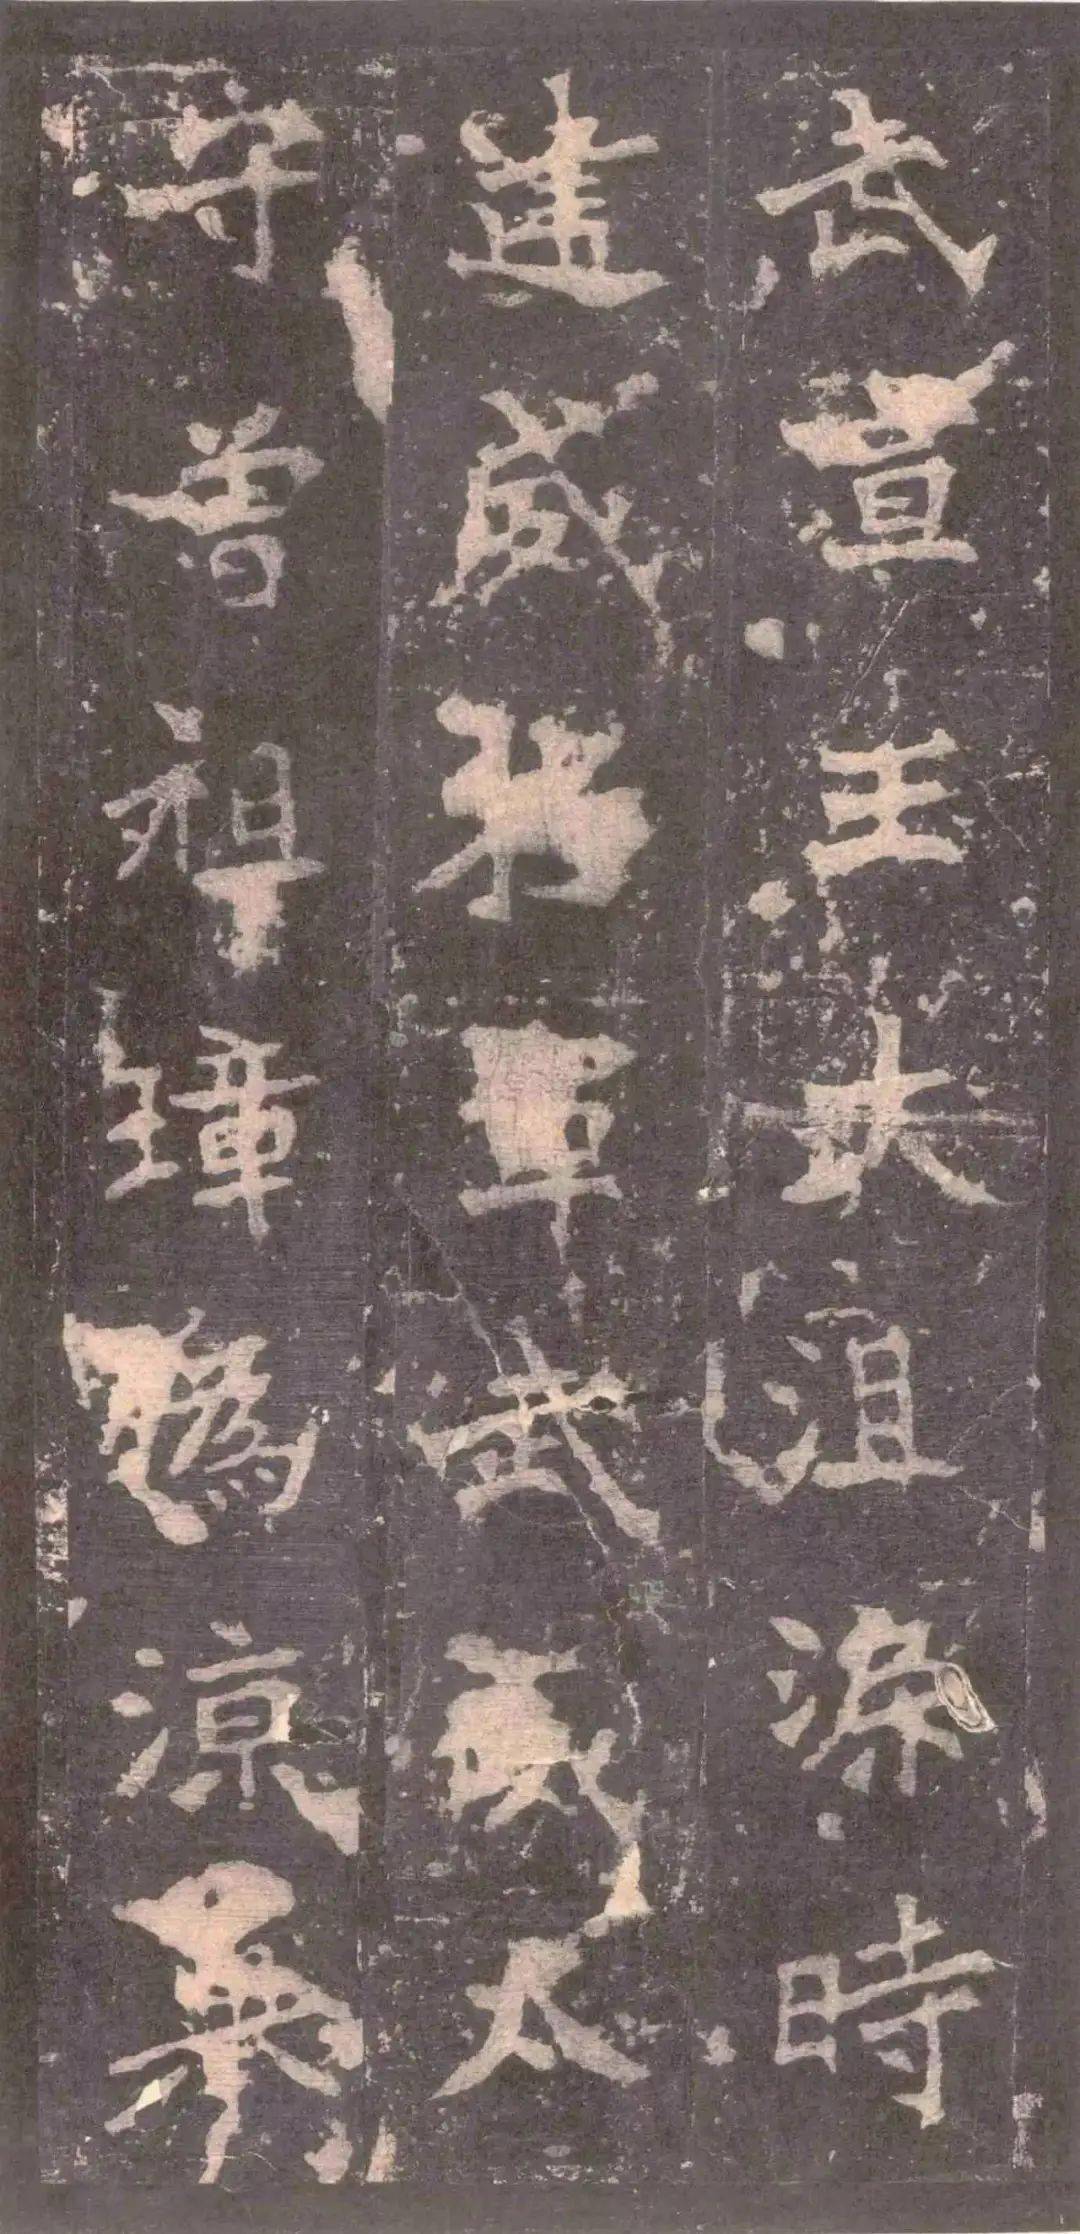 武宣王大沮渠時
建威將軍武威太
守曾祖璋偽涼舉